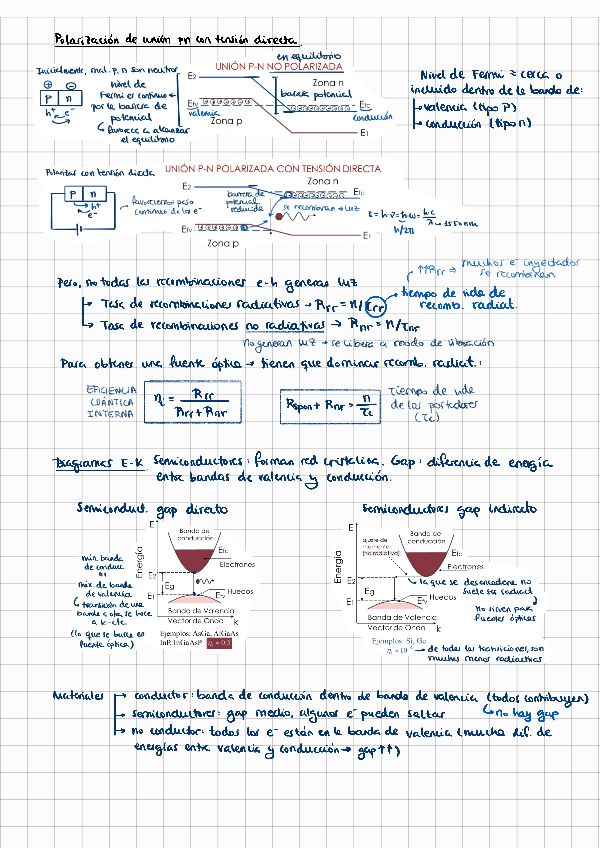 Polarización de unión pn con tensión directa
Inicialmente, mat. p, n son neutros
nivel de
Fermi es continuo
por la barrera de
potencial
favorece a alcanzar
el equilibrio
P n
h+ e-
en equilibrio
UNIÓN P-N NO POLARIZADA
E2
Zona n
barrera potencial
Efv
valencia
Zona p
Efc
conducción
E1
Nivel de Fermi ≈ cerca o
incluido dentro de la banda de:
→ valencia (tipo P)
→ conducción (tipo n)
Polarizas con tensión directa
P n
h+
e-
favorecemos paso
continuo de los e-
UNIÓN P-N POLARIZADA CON TENSIÓN DIRECTA
E2
Zona n
barrera de
potencial
reducida
Efc
se recombinan → luz
Efv
Zona p
E1
h/2π
λ → 1550nm
Pero, no todas las recombinaciones e-h generan luz
↑↑Rrr ⇒ muchos e- inyectados
se recombinan
→ Tasa de recombinaciones radiativas → Rrr = n/τrr → tiempo de vida de
recomb. radiat.
→ Tasa de recombinaciones no radiativas → Rnr = n/τnr
No generan luz → se libera a modo de vibración
Para obtener una fuente óptica → tienen que dominar recomb. radiat.:
EFICIENCIA
CUÁNTICA
INTERNA
ηi = Rrr / Rrr + Rnr
Rspon + Rnr = n / τc
Tiempo de vida
de los portadores
(τc)
Diagramas E-K Semiconductores: forman red cristalina. Gap: diferencia de energía
entre bandas de valencia y conducción.
Semiconduct. gap directo
mín. banda
de conducc.
máx. de banda
de valencia
transición de una
banda a otra, se hace
a k-cte.
(lo que se busca en
fuente óptica)
E
Energía
Banda de
conducción
Efc
Electrones
E2
Eg
E1
Efv
Huecos
Banda de Valencia
Vector de Onda k
Ejemplos: AsGa, AlGaAs
InP, InGaAsP ηi ≈ 0.5
Semiconductores gap indirecto
E
Energía
Banda de
conducción
ajuste de
momento
(no radiativo)
Efc
Electrones
E2
Eg
E1
Efv
Huecos
Banda de Valencia
Vector de Onda k
Ejemplos: Si, Ge
la que se desencadena no
suele ser radiad
no sirven para
fuentes ópticas
→ de todas las transiciones, son
muchas menos radiactivas
Materiales → conductor: banda de conducción dentro de banda de valencia (todos contribuyen)
no hay gap
→ semiconductores: gap medio, algunos e- pueden saltar
→ no conductor: todos los e- están en la banda de valencia (mucha dif. de
energías entre valencia y conducción → gap↑↑)